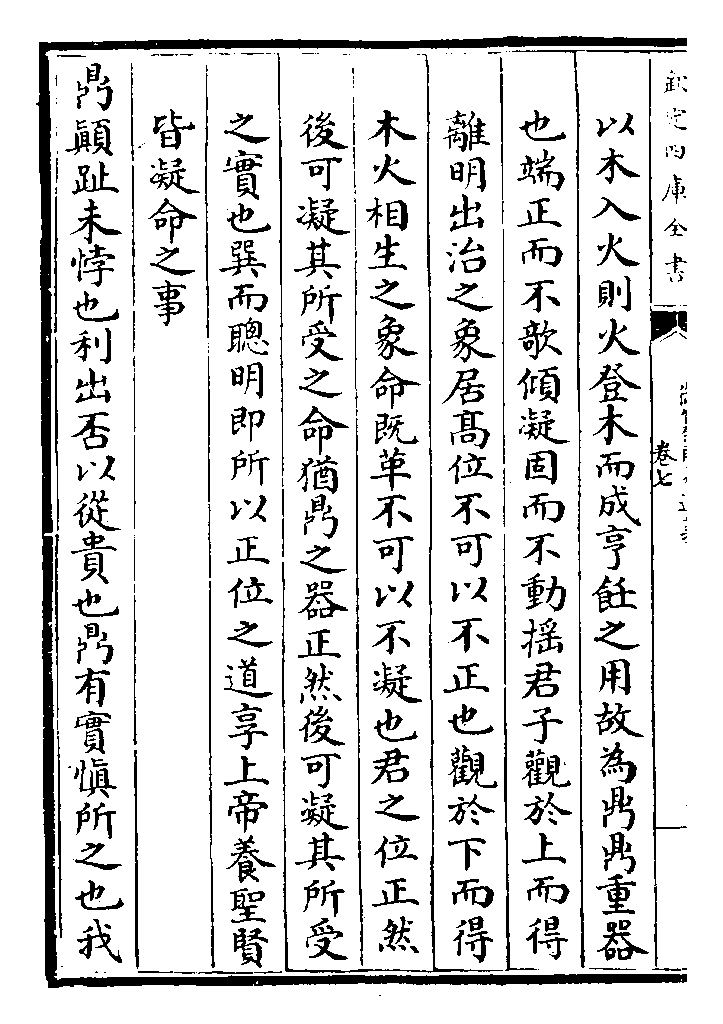 欽定四庫全書
卷七
以木入火則火登木而成亨飪之用故為鼎鼎重器
也端正而不欹傾凝固而不動搖君子觀於上而得
離明出治之象居髙位不可以不正也觀於下而得
木火相生之象命既革不可以不凝也君之位正然
後可凝其所受之命猶鼎之器正然後可凝其所受
之實也巽而聰明即所以正位之道享上帝養聖賢
皆凝命之事
鼎顚趾未悖也利出否以從貴也鼎有實愼所之也我